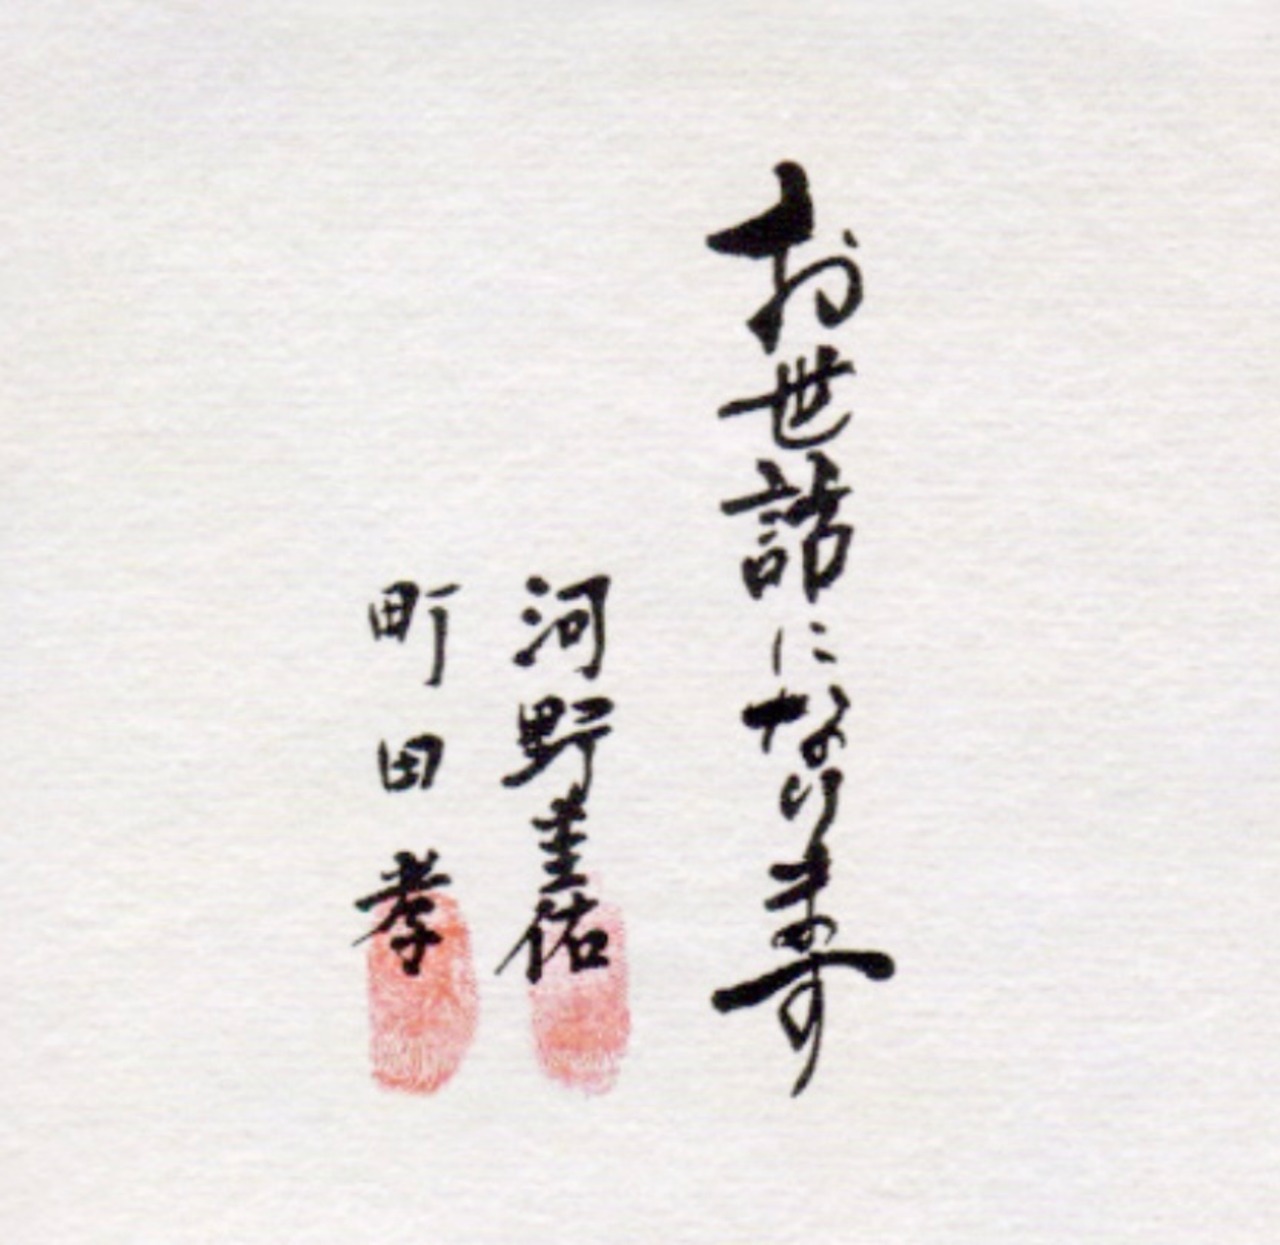 お世話になります
河野圭佑
町田孝